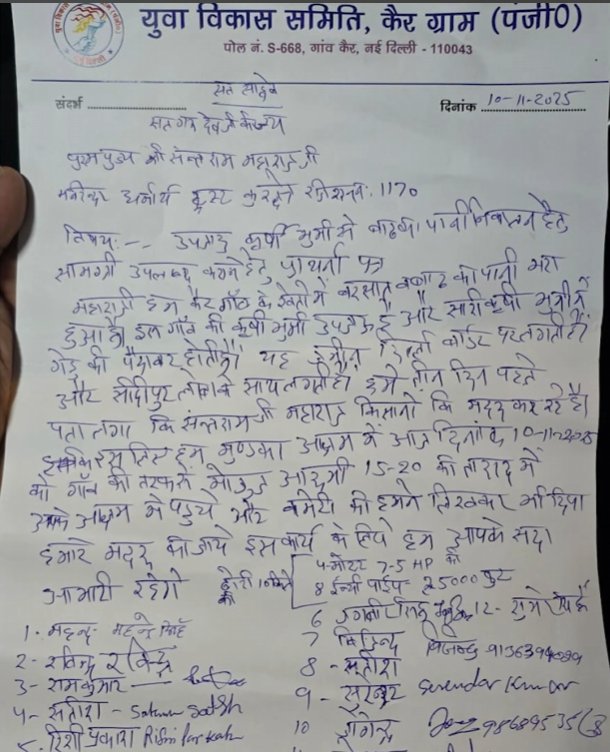 युवा विकास समिति, कैर ग्राम (पंजी0)
पोल नं. S-668, गांव कैर, नई दिल्ली - 110043
संदर्भ
दिनांक 10-11-2025
सत साहेब
सतगुरु देव जी की जय
परम पुज्य श्री सन्तराम महाराज जी
धर्मार्थ ट्रस्ट रजि 1170
विषय:-- उपजाऊ कृर्षी भुमी से बाढका पानी निकालने हेतु
सामग्री उपलब्ध करने हेतु प्राथर्ना पत्र
महाराजी हम कैर गाँव के खेतो में बरसात व बाढ का पानी भरा
हुआ है। इस गाँव की कृर्षी भुमी उपजाऊ है और सारी कृर्षी भुमी में
गेहु की पैदावर होती है। यह जमीन दिल्ली बार्डर पर लगती है।
और सीदीपुर के साथ लगती है। हमे तीन दिन पहले
पता लगा कि सन्तराम जी महाराज किसानो कि मदद कर रहे है।
इसलिए हम मुण्डका आश्रम में आज दिनांक 10-11-2025
को गाँव की तरफ से मोजुद आदमी 15-20 की तादाद में
आश्रम मे पहुचे और कमेटी को हमने लिखकर भी दिया
हमारे मदद की जाये इस कार्य के लिये हम आपके सदा
आभारी रहेगे
4 मोटर 7-5 HP की
8 ईन्ची पाईप 25000 फुट
1 -
2 - रविन्द्र रविन्द्र
3 - रामकुमार
4 - सतीश -
5. रिशी प्रकाश Rishi Parkash
6
7 विजेन्द्र 9136394089
8 - सतीश
9 - सुरेन्द्र Surender Kumar
10 जोगेन्द्र